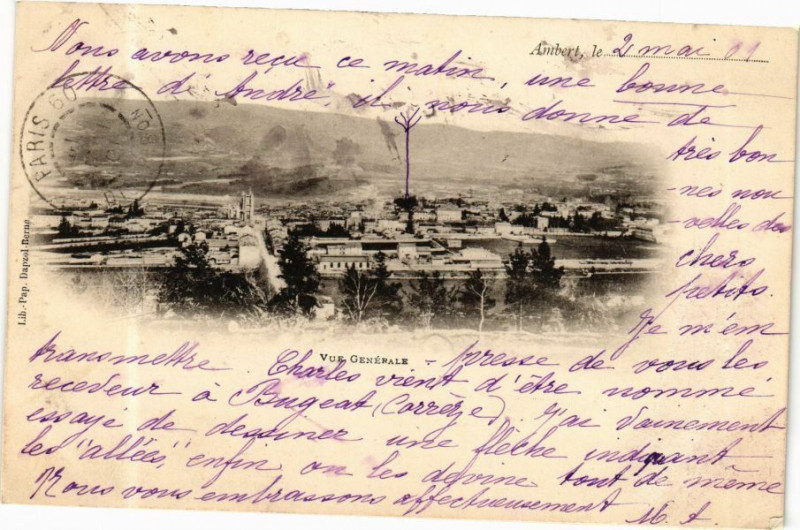 Ambert, le 2 mai 01
Nous avons reçu ce matin, une bonne
lettre d'André, il nous donne de
très bon
-nes nou
-velles des
chers
petits.
Je m'em
VUE GÉNÉRALE
- presse de vous les
transmettre. Charles vient d'être nommé
receveur à Bugeat (Corrèze). J'ai vainement
essayé de dessiner une flèche indiquant
les "allées", enfin, on les devine tout de même
Nous vous embrassons affectueusement
M. t
PARIS 60
Lib.-Pap. Dapzol-Berne